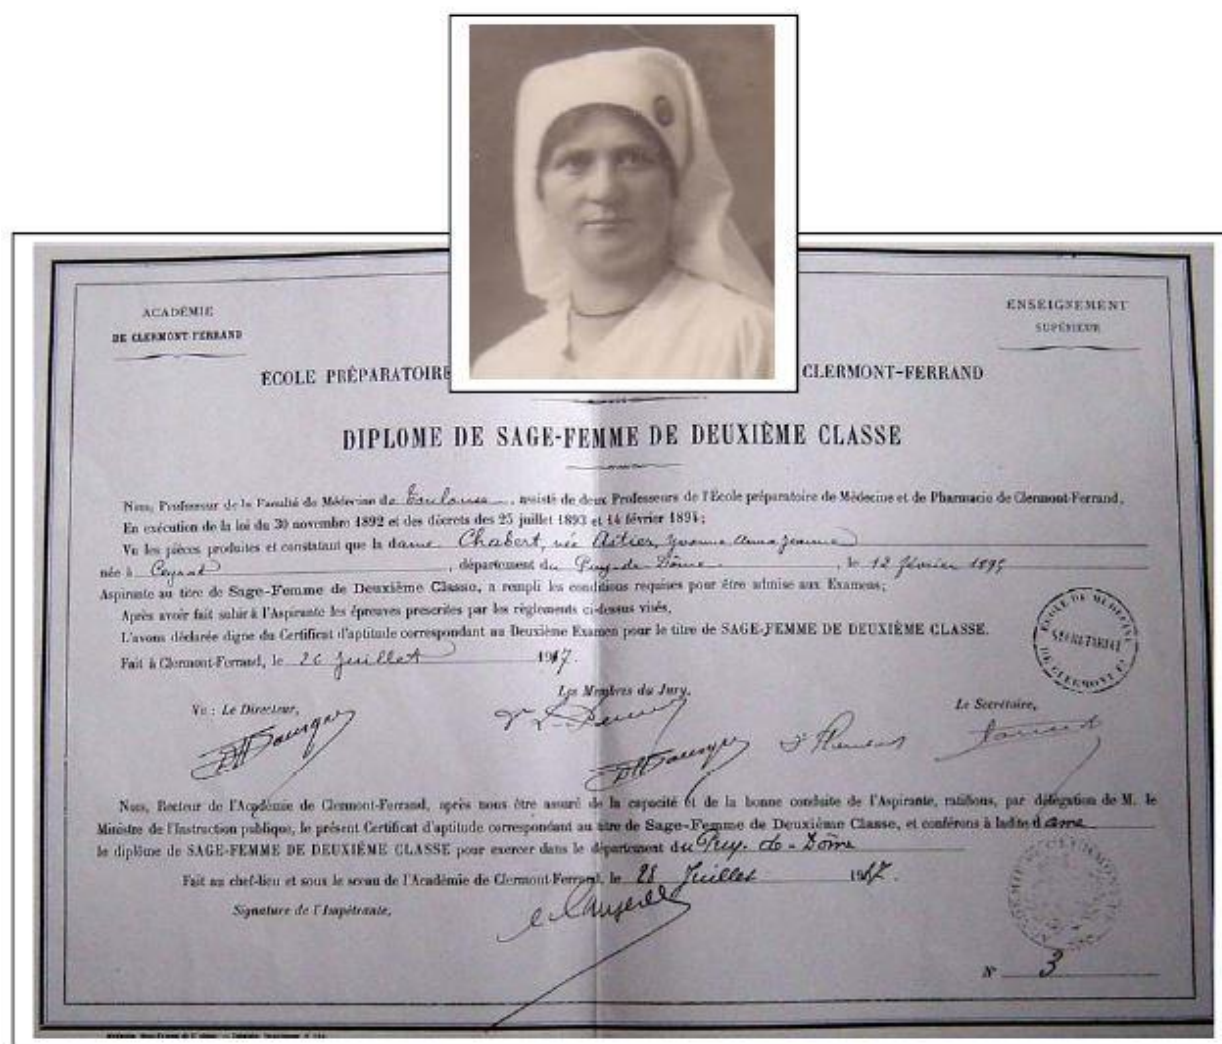 ACADÉMIE
DE CLERMONT-FERRAND
ENSEIGNEMENT
SUPÉRIEUR
ÉCOLE PRÉPARATOIRE CLERMONT-FERRAND
DIPLOME DE SAGE-FEMME DE DEUXIÈME CLASSE
Nous, Professeur de la Faculté de Médecine de Toulouse, assisté de deux Professeurs de l'École préparatoire de Médecine et de Pharmacie de Clermont-Ferrand,
En exécution de la loi du 30 novembre 1892 et des décrets des 25 juillet 1893 et 14 février 1894;
Vu les pièces produites et constatant que la dame Chabert, née Astier, Yvonne Anna Jeanne
née à Ceyrat, département du Puy-de-Dôme, le 12 février 1895
Aspirante au titre de Sage-Femme de Deuxième Classe, a rempli les conditions requises pour être admise aux Examens;
Après avoir fait subir à l'Aspirante les épreuves prescrites par les règlements ci-dessus visés,
L'avons déclarée digne du Certificat d'aptitude correspondant au Deuxième Examen pour le titre de SAGE-FEMME DE DEUXIÈME CLASSE.
Fait à Clermont-Ferrand, le 26 Juillet 1917.
ÉCOLE DE MÉDECINE
SECRÉTARIAT
DE CLERMONT Fd
Les Membres du Jury,
Vu : Le Directeur,
Le Secrétaire,
Nous, Recteur de l'Académie de Clermont-Ferrand, après nous être assuré de la capacité et de la bonne conduite de l'Aspirante, ratifions, par délégation de M. le
Ministre de l'Instruction publique, le présent Certificat d'aptitude correspondant au titre de Sage-Femme de Deuxième Classe, et conférons à ladite dame
le diplôme de SAGE-FEMME DE DEUXIÈME CLASSE pour exercer dans le département du Puy-de-Dôme
Fait au chef-lieu et sous le sceau de l'Académie de Clermont-Ferrand, le 28 Juillet 1917.
Signature de l'Impétrante,
N° 3